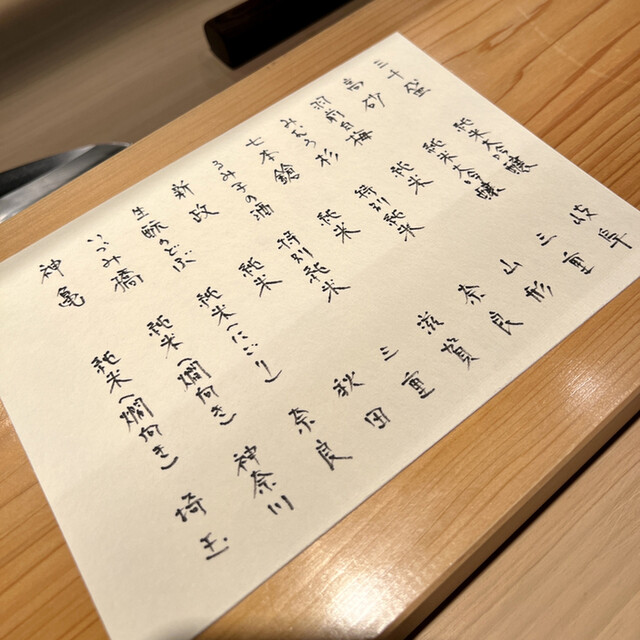 三千盛 純米大吟醸 岐阜
高砂 純米大吟醸 三重
羽前白梅 純米 山形
みむろ杉 特別純米 奈良
七本鎗 純米 滋賀
るみ子の酒 特別純米 三重
新政 純米 秋田
生酛のどぶ 純米(にごり) 奈良
いづみ橋 純米(燗向き) 神奈川
神亀 純米(燗向き) 埼玉